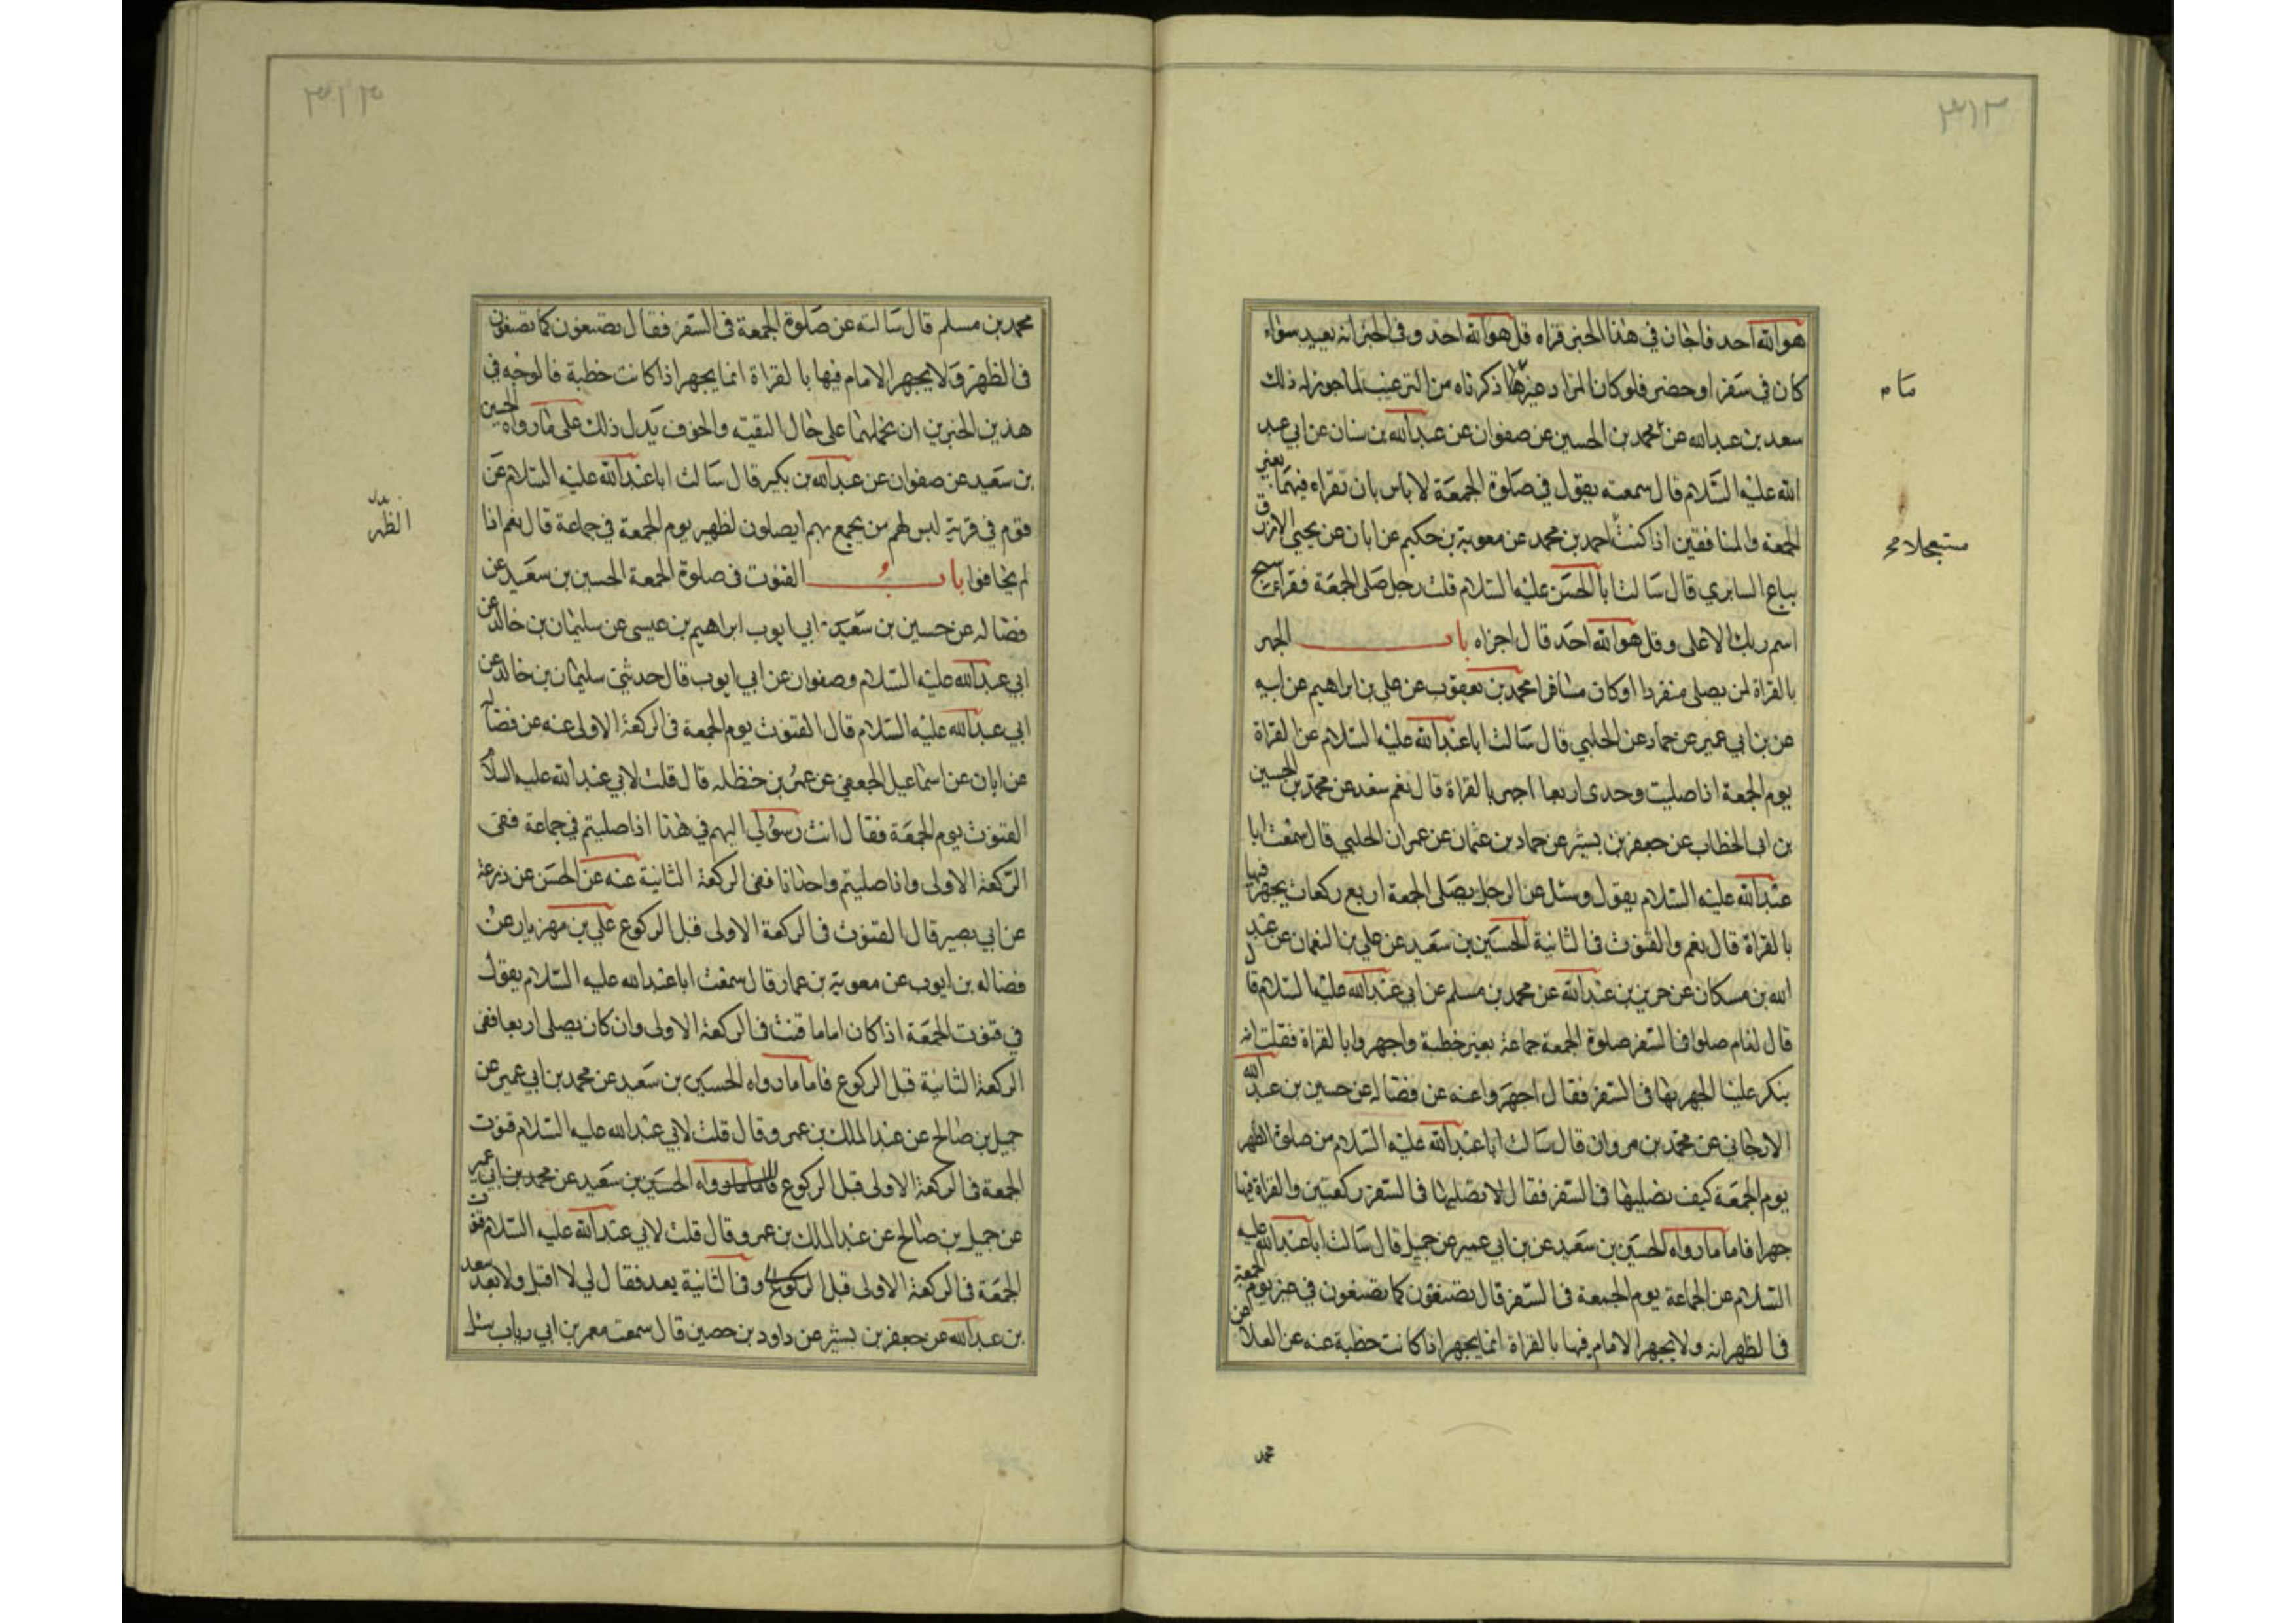 ٣١٢
هو الله احد فاجان في هذا الخبر قراه قل هو الله احد وفي الخبر انه يعيد سواء
كان في سفر او حضر فلو كان المراد غير ما ذكرناه من الترغيب لما جوز له ذلك
ماه
سعد بن عبدالله عن محمد بن الحسين عن صفوان عن عبدالله بن سنان عن ابي عبد
الله عليه السلام قال سمعته يقول في صلوة الجمعة لا باس بان تقراء فيهما بغير
الجمعة والمنافقين اذا كنت احمد بن محمد عن معوية بن حكيم عن ابان عن يحيى الازرق
مستعجلا
بياع السابري قال سالت بالحسن عليه السلام قلت رجل صلى الجمعة فقراء سبح
اسم ربك الاعلى وقل هو الله احد قال اجزاه باب الجهر
بالقراة لمن يصلى منفردا او كان مسافرا محمد بن يعقوب عن علي بن ابراهيم عن ابيه
عن بن ابي عمير عن حماد عن الحلبي قال سالت ابا عبدالله عليه السلام عن القراة
يوم الجمعة اذا صليت وحدى اربعا اجهر بالقراة قال نعم سعد عن محمد بن الحسين
بن ابي الخطاب عن جعفر بن بشير عن حماد بن عثمان عن عمران الحلبي قال سمعت ابا
عبدالله عليه السلام يقول وسئل عن الرجل يصلى الجمعة اربع ركعات يجهر فيها
بالقراة قال نعم والقنوت في الثانية الحسين بن سعيد عن علي بن النعمان عن عبد
الله بن مسكان عن حريز بن عبدالله عن محمد بن مسلم عن ابي عبدالله عليه السلام قال
قال لنا صلوا في السفر صلوة الجمعة جماعة بغير خطبة واجهروا بالقراة فقلت انه
ينكر علينا الجهر بها في السفر فقال اجهروا عنه عن فضاله عن حسين بن عبدالله
الارجاني عن محمد بن مروان قال سالت ابا عبدالله عليه السلام من صلوة الظهر
يوم الجمعة كيف نصليها في السفر فقال لا تصليها في السفر ركعتين والقراة فيها
جهرا فاما ما رواه الحسين بن سعيد عن بن ابي عمير عن جميل قال سالت ابا عبدالله عليه
السلام عن الجماعة يوم الجمعة في السفر قال يصنعون كما يصنعون في غير يوم الجمعة
في الظهر انه ولا يجهر الامام فيها بالقراة انما يجهر اذا كانت خطبة عنه عن العلا عن
محمد
٣١٣
محمد بن مسلم قال سالته عن صلوة الجمعة في السفر فقال يصنعون كما يصنعون
في الظهر ولا يجهر الامام فيها بالقراة انما يجهر اذا كانت خطبة فالوجه في
هذين الخبرين ان نحملهما على حال التقية والخوف يدل ذلك على ما رواه الحسين
بن سعيد عن صفوان عن عبدالله بن بكير قال سالت ابا عبدالله عليه السلام عن
قوم في قرية ليس لهم من يجمع بهم ايصلون لظهير يوم الجمعة في جماعة قال نعم اذا
الظهر
لم يخافوا باب القنوت في صلوة الجمعة الحسين بن سعيد عن
فضاله عن حسين بن سعيد ابي ايوب ابراهيم بن عيسى عن سليمان بن خالد عن
ابي عبدالله عليه السلام وصفوان عن ابي ايوب قال حدثني سليمان بن خالد عن
ابي عبدالله عليه السلام قال القنوت يوم الجمعة في الركعة الاولى عنه عن فضاله
عن ابان عن اسماعيل الجعفي عن عمر بن حنظله قال قلت لابي عبدالله عليه السلام
القنوت يوم الجمعة فقال انت رسولي اليهم في هذا اذا صليتم في جماعة ففى
الركعة الاولى واذا صليتم واحدانا ففى الركعة الثانية عنه عن الحسن عن زرعة
عن ابي بصير قال القنوت في الركعة الاولى قبل الركوع علي بن مهزيار عن
فضاله بن ايوب عن معوية بن عمار قال سمعت ابا عبدالله عليه السلام يقول
في قنوت الجمعة اذا كان اماما قنت في الركعة الاولى وان كان يصلى اربعا ففى
الركعة الثانية قبل الركوع فاما ما رواه الحسين بن سعيد عن محمد بن ابي عمير عن
جميل بن صالح عن عبد الملك بن عمرو قال قلت لابي عبدالله عليه السلام قنوت
الجمعة في الركعة الاولى قبل الركوع فاما ما رواه الحسين بن سعيد عن محمد بن ابي عمير
عن جميل بن صالح عن عبد الملك بن عمرو قال قلت لابي عبدالله عليه السلام قنوت
الجمعة في الركعة الاولى قبل الركوع وفي الثانية بعد فقال لي لا قبل ولا بعد سعد
بن عبدالله عن جعفر بن بشير عن داود بن حصين قال سمعت معمر بن ابي رباب يسئل